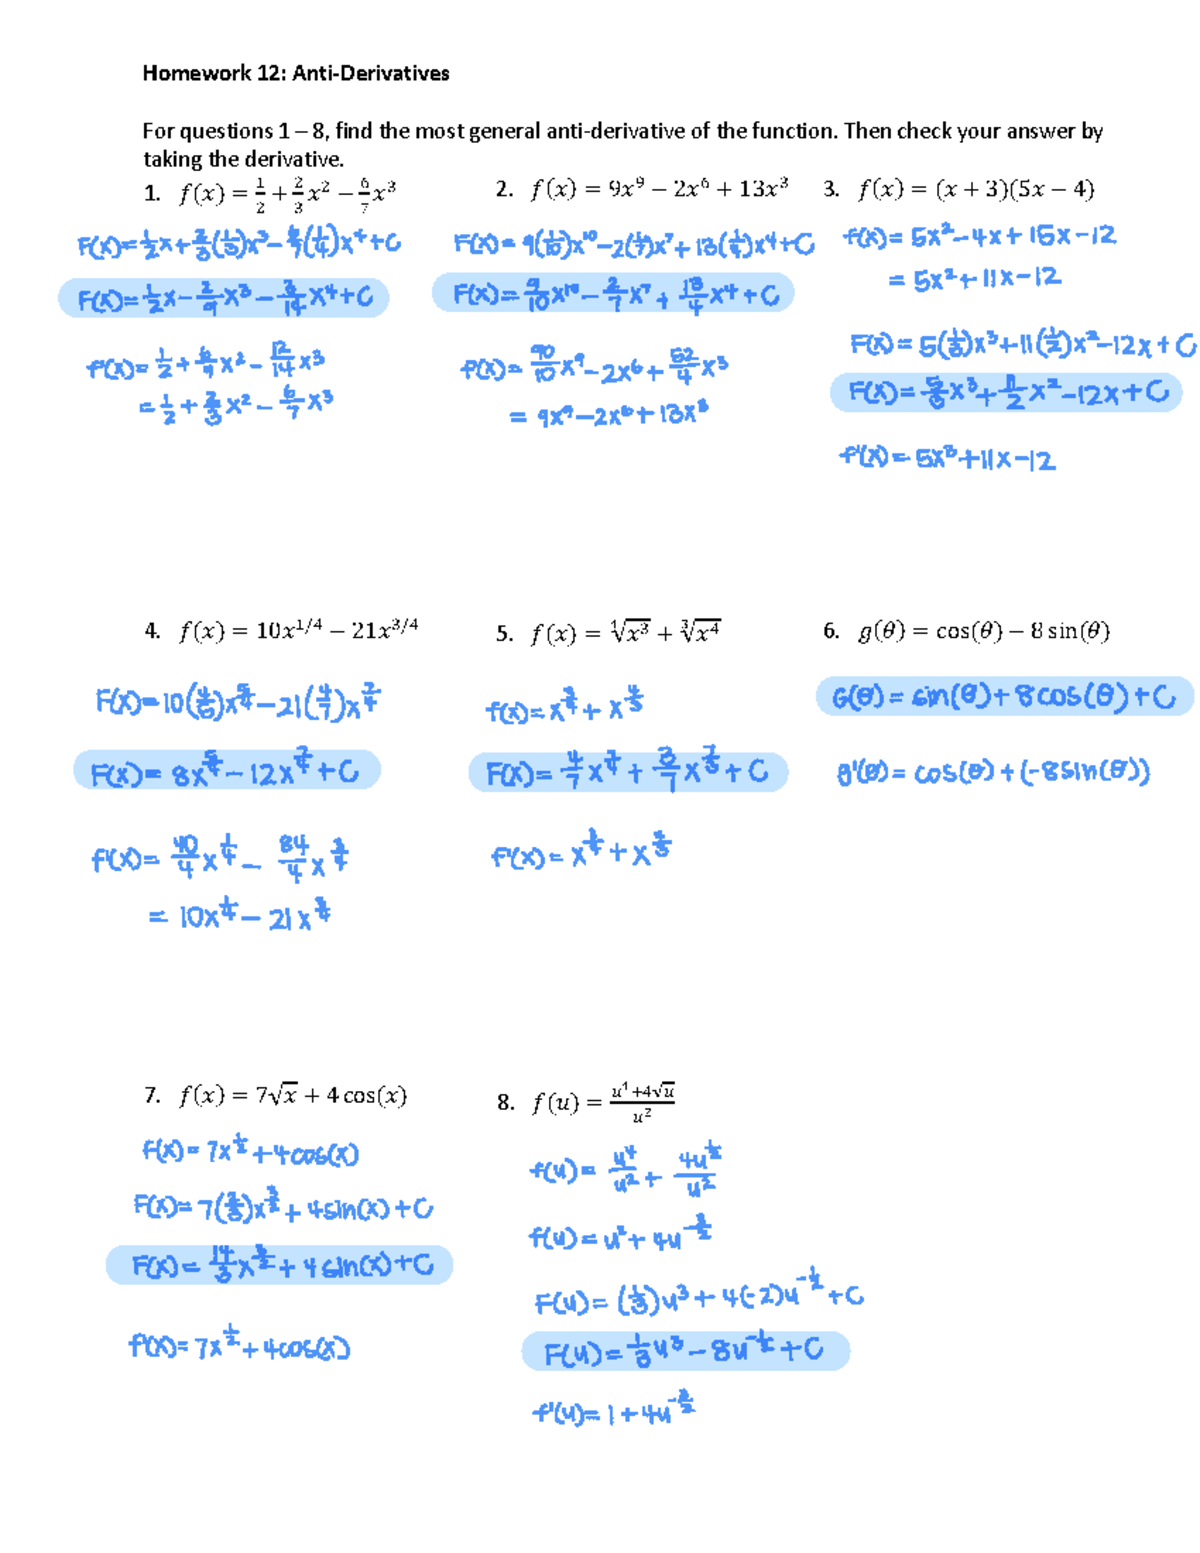 Homework 12: Anti-Derivatives
For questions 1 – 8, find the most general anti-derivative of the function. Then check your answer by
taking the derivative.
1. f(x) = 1/2 + 2/3 x² − 6/7 x³
F(x)=1/2x+2/3(1/3)x³−6/7(1/4)x⁴+C
F(x)=1/2x−2/9x³−3/14x⁴+C
f'(x)=1/2+6/9x²−12/14x³
=1/2+2/3x²−6/7x³
2. f(x) = 9x⁹ − 2x⁶ + 13x³
F(x)=9(1/10)x¹⁰−2(1/7)x⁷+13(1/4)x⁴+C
F(x)=9/10x¹⁰−2/7x⁷+13/4x⁴+C
f'(x)=90/10x⁹−2x⁶+52/4x³
=9x⁹−2x⁶+13x³
3. f(x) = (x + 3)(5x − 4)
f(x)=5x²−4x+15x−12
=5x²+11x−12
F(x)=5(1/3)x³+11(1/2)x²−12x+C
F(x)=5/3x³+11/2x²−12x+C
f'(x)=5x³+11x−12
4. f(x) = 10x^{1/4} − 21x^{3/4}
F(x)=10(4/5)x^{5/4}−21(4/7)x^{7/4}
F(x)=8x^{5/4}−12x^{7/4}+C
f'(x)=40/4x^{1/4}−84/4x^{3/4}
=10x^{1/4}−21x^{3/4}
5. f(x) = ∜x³ + ∛x⁴
f(x)=x^{3/4}+x^{4/3}
F(x)=4/7x^{7/4}+3/7x^{7/3}+C
f'(x)=x^{3/4}+x^{4/3}
6. g(θ) = cos(θ) − 8 sin(θ)
G(θ)=sin(θ)+8cos(θ)+C
g'(θ)=cos(θ)+(−8sin(θ))
7. f(x) = 7√x + 4 cos(x)
f(x)=7x^{1/2}+4cos(x)
F(x)=7(2/3)x^{3/2}+4sin(x)+C
F(x)=14/3x^{3/2}+4sin(x)+C
f'(x)=7x^{1/2}+4cos(x)
8. f(u) = (u⁴+4√u)/u²
f(u)=u⁴/u²+4u^{1/2}/u²
f(u)=u²+4u^{−3/2}
F(u)=(1/3)u³+4(−2)u^{−1/2}+C
F(u)=1/3u³−8u^{−1/2}+C
f'(u)=1+4u^{−3/2}